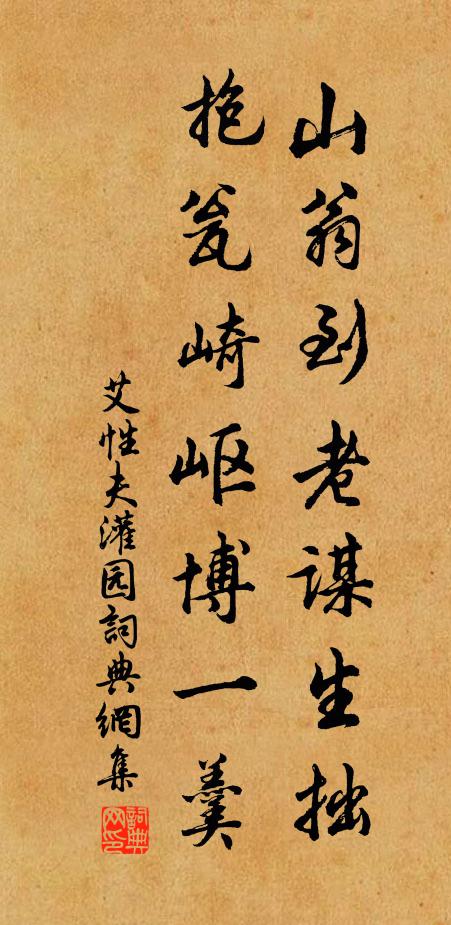 山翁到老谋生拙
抱瓮崎岖博一羹
艾性夫灌园詞典網集
詞典网印